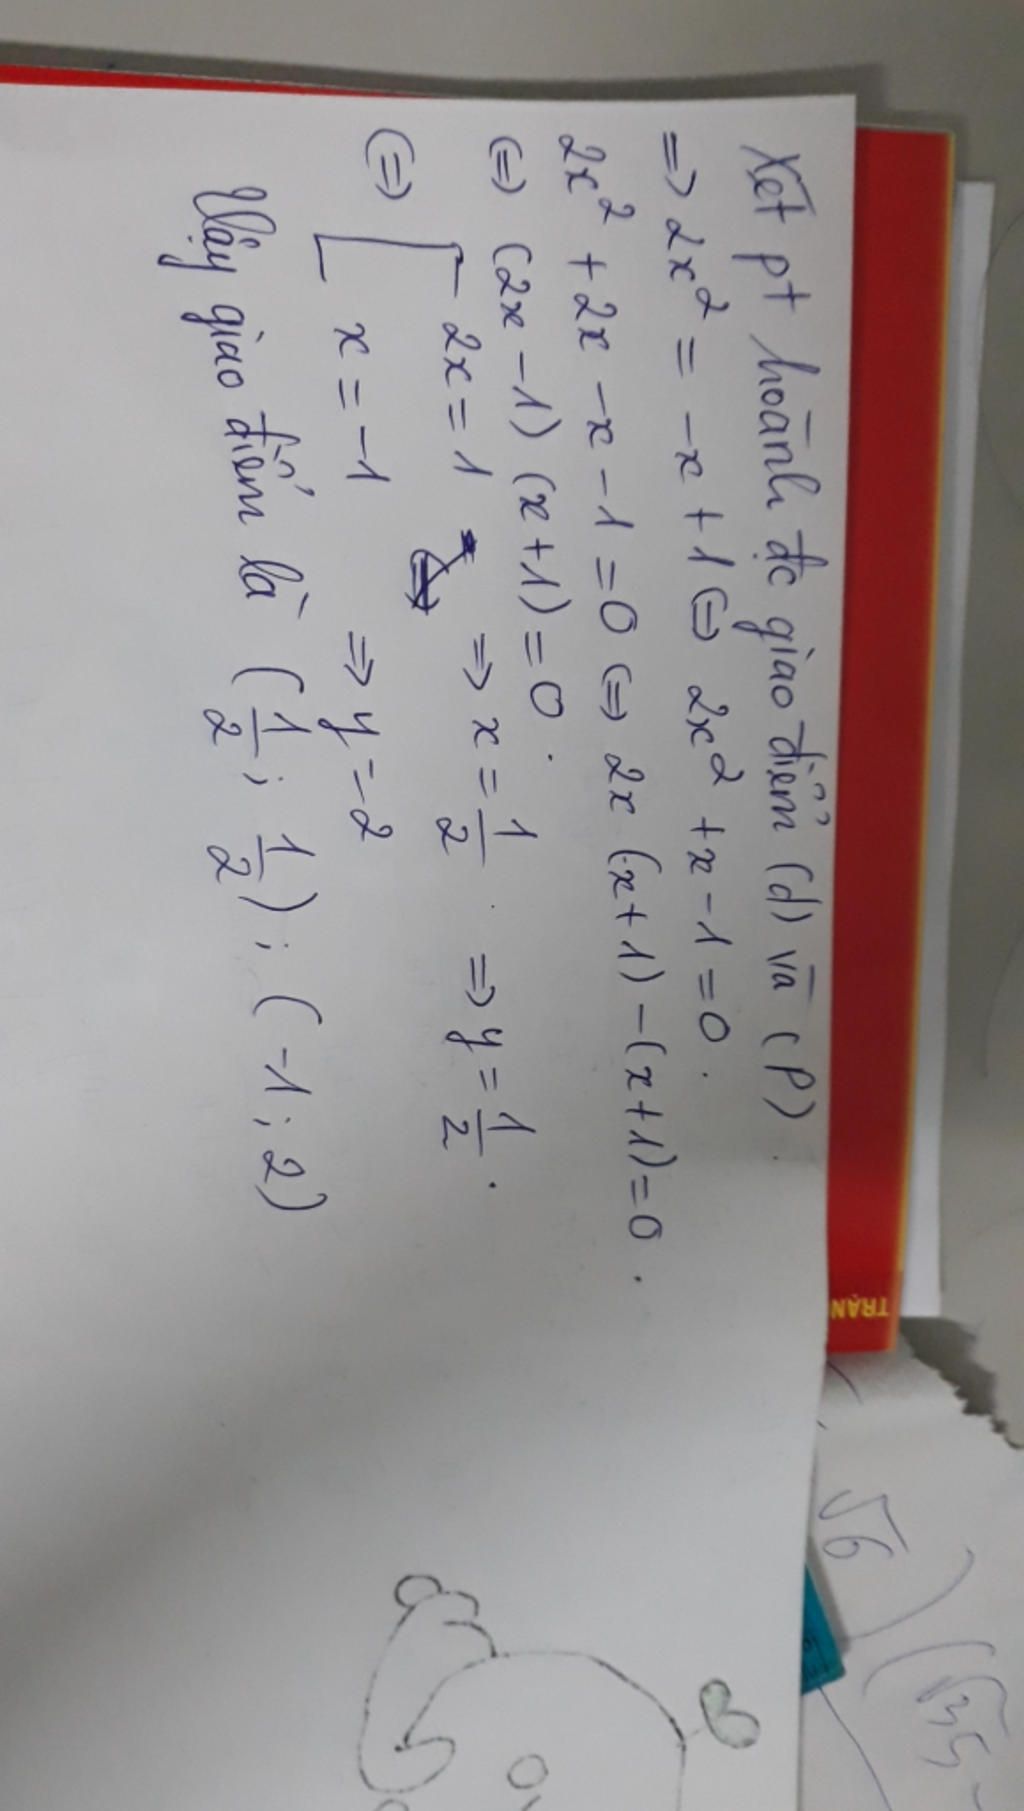 Xét pt hoành đc giao điểm (d) và (P).
=> 2x² = -x + 1 <=> 2x² + x - 1 = 0.
2x² + 2x - x - 1 = 0 <=> 2x (x+1) - (x+1) = 0.
<=> (2x - 1) (x+1) = 0.
<=> [ 2x = 1 => x = 1/2. => y = 1/2.
x = -1 => y = 2
Vậy giao điểm là (1/2; 1/2); (-1; 2)
TRẬN
√6